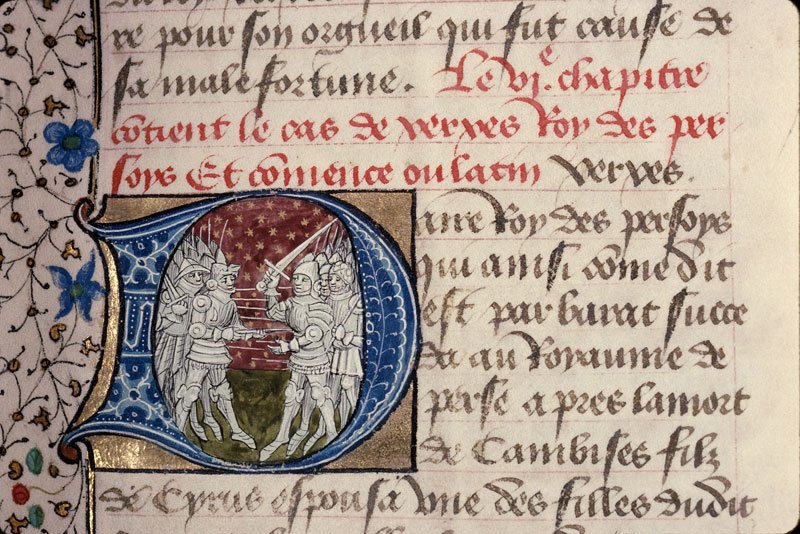 re pour son orgueil qui fut cause de
sa male fortune. Le vj.e chapitre
cõtient le cas de xerxes Roy des per
soys Et cõmence ou latin xerxes.
Daire Roy des persoys
qui ainsi cõme dit
est par barat succe
da au Royaume de
perse apres la mort
de Cambises filz
de Cyrus espousa vne des filles dudit